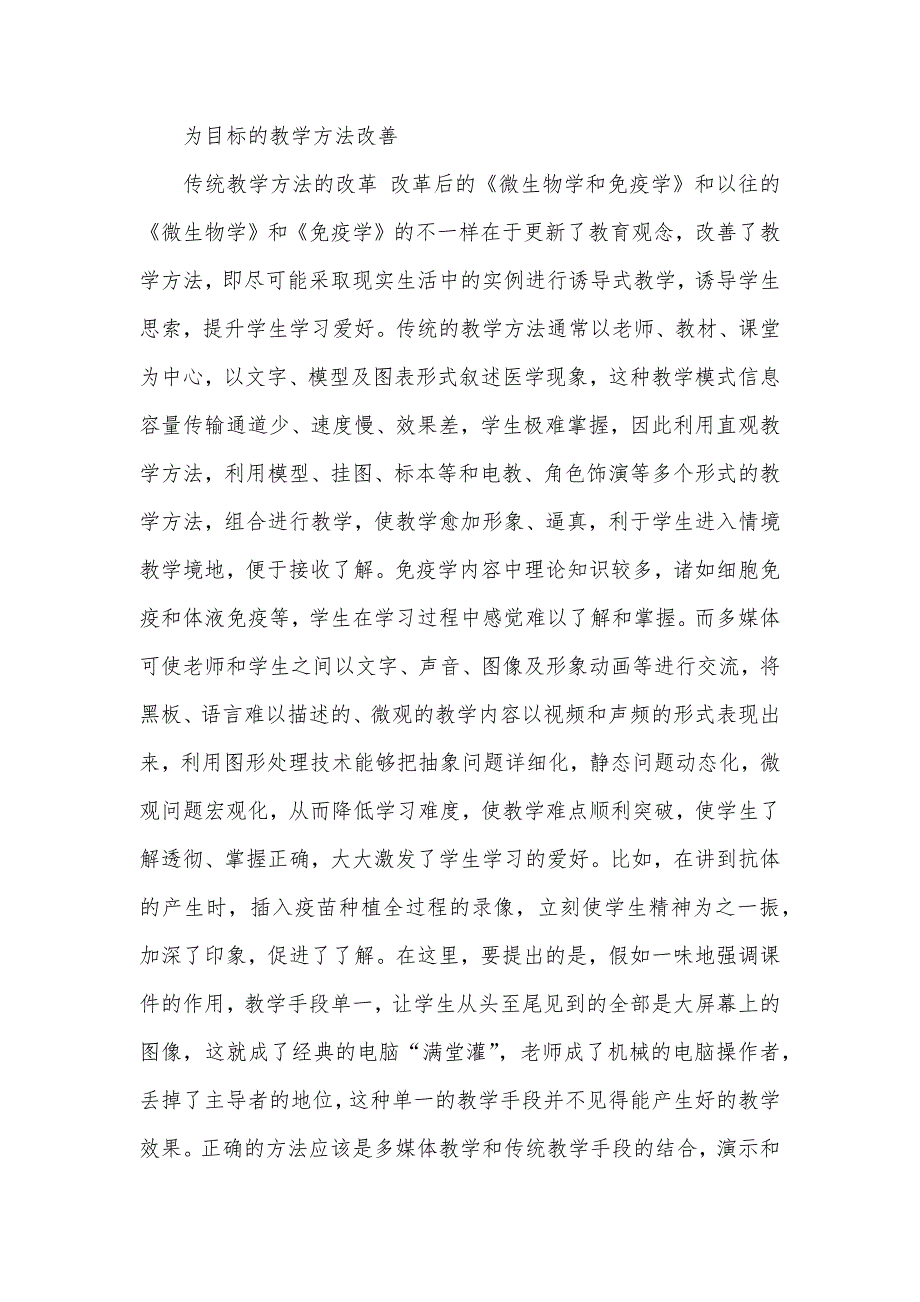 为目标的教学方法改善
传统教学方法的改革 改革后的《微生物学和免疫学》和以往的
《微生物学》和《免疫学》的不一样在于更新了教育观念，改善了教
学方法，即尽可能采取现实生活中的实例进行诱导式教学，诱导学生
思索，提升学生学习爱好。传统的教学方法通常以老师、教材、课堂
为中心，以文字、模型及图表形式叙述医学现象，这种教学模式信息
容量传输通道少、速度慢、效果差，学生极难掌握，因此利用直观教
学方法，利用模型、挂图、标本等和电教、角色饰演等多个形式的教
学方法，组合进行教学，使教学愈加形象、逼真，利于学生进入情境
教学境地，便于接收了解。免疫学内容中理论知识较多，诸如细胞免
疫和体液免疫等，学生在学习过程中感觉难以了解和掌握。而多媒体
可使老师和学生之间以文字、声音、图像及形象动画等进行交流，将
黑板、语言难以描述的、微观的教学内容以视频和声频的形式表现出
来，利用图形处理技术能够把抽象问题详细化，静态问题动态化，微
观问题宏观化，从而降低学习难度，使教学难点顺利突破，使学生了
解透彻、掌握正确，大大激发了学生学习的爱好。比如，在讲到抗体
的产生时，插入疫苗种植全过程的录像，立刻使学生精神为之一振，
加深了印象，促进了了解。在这里，要提出的是，假如一味地强调课
件的作用，教学手段单一，让学生从头至尾见到的全部是大屏幕上的
图像，这就成了经典的电脑“满堂灌”，老师成了机械的电脑操作者，
丢掉了主导者的地位，这种单一的教学手段并不见得能产生好的教学
效果。正确的方法应该是多媒体教学和传统教学手段的结合，演示和